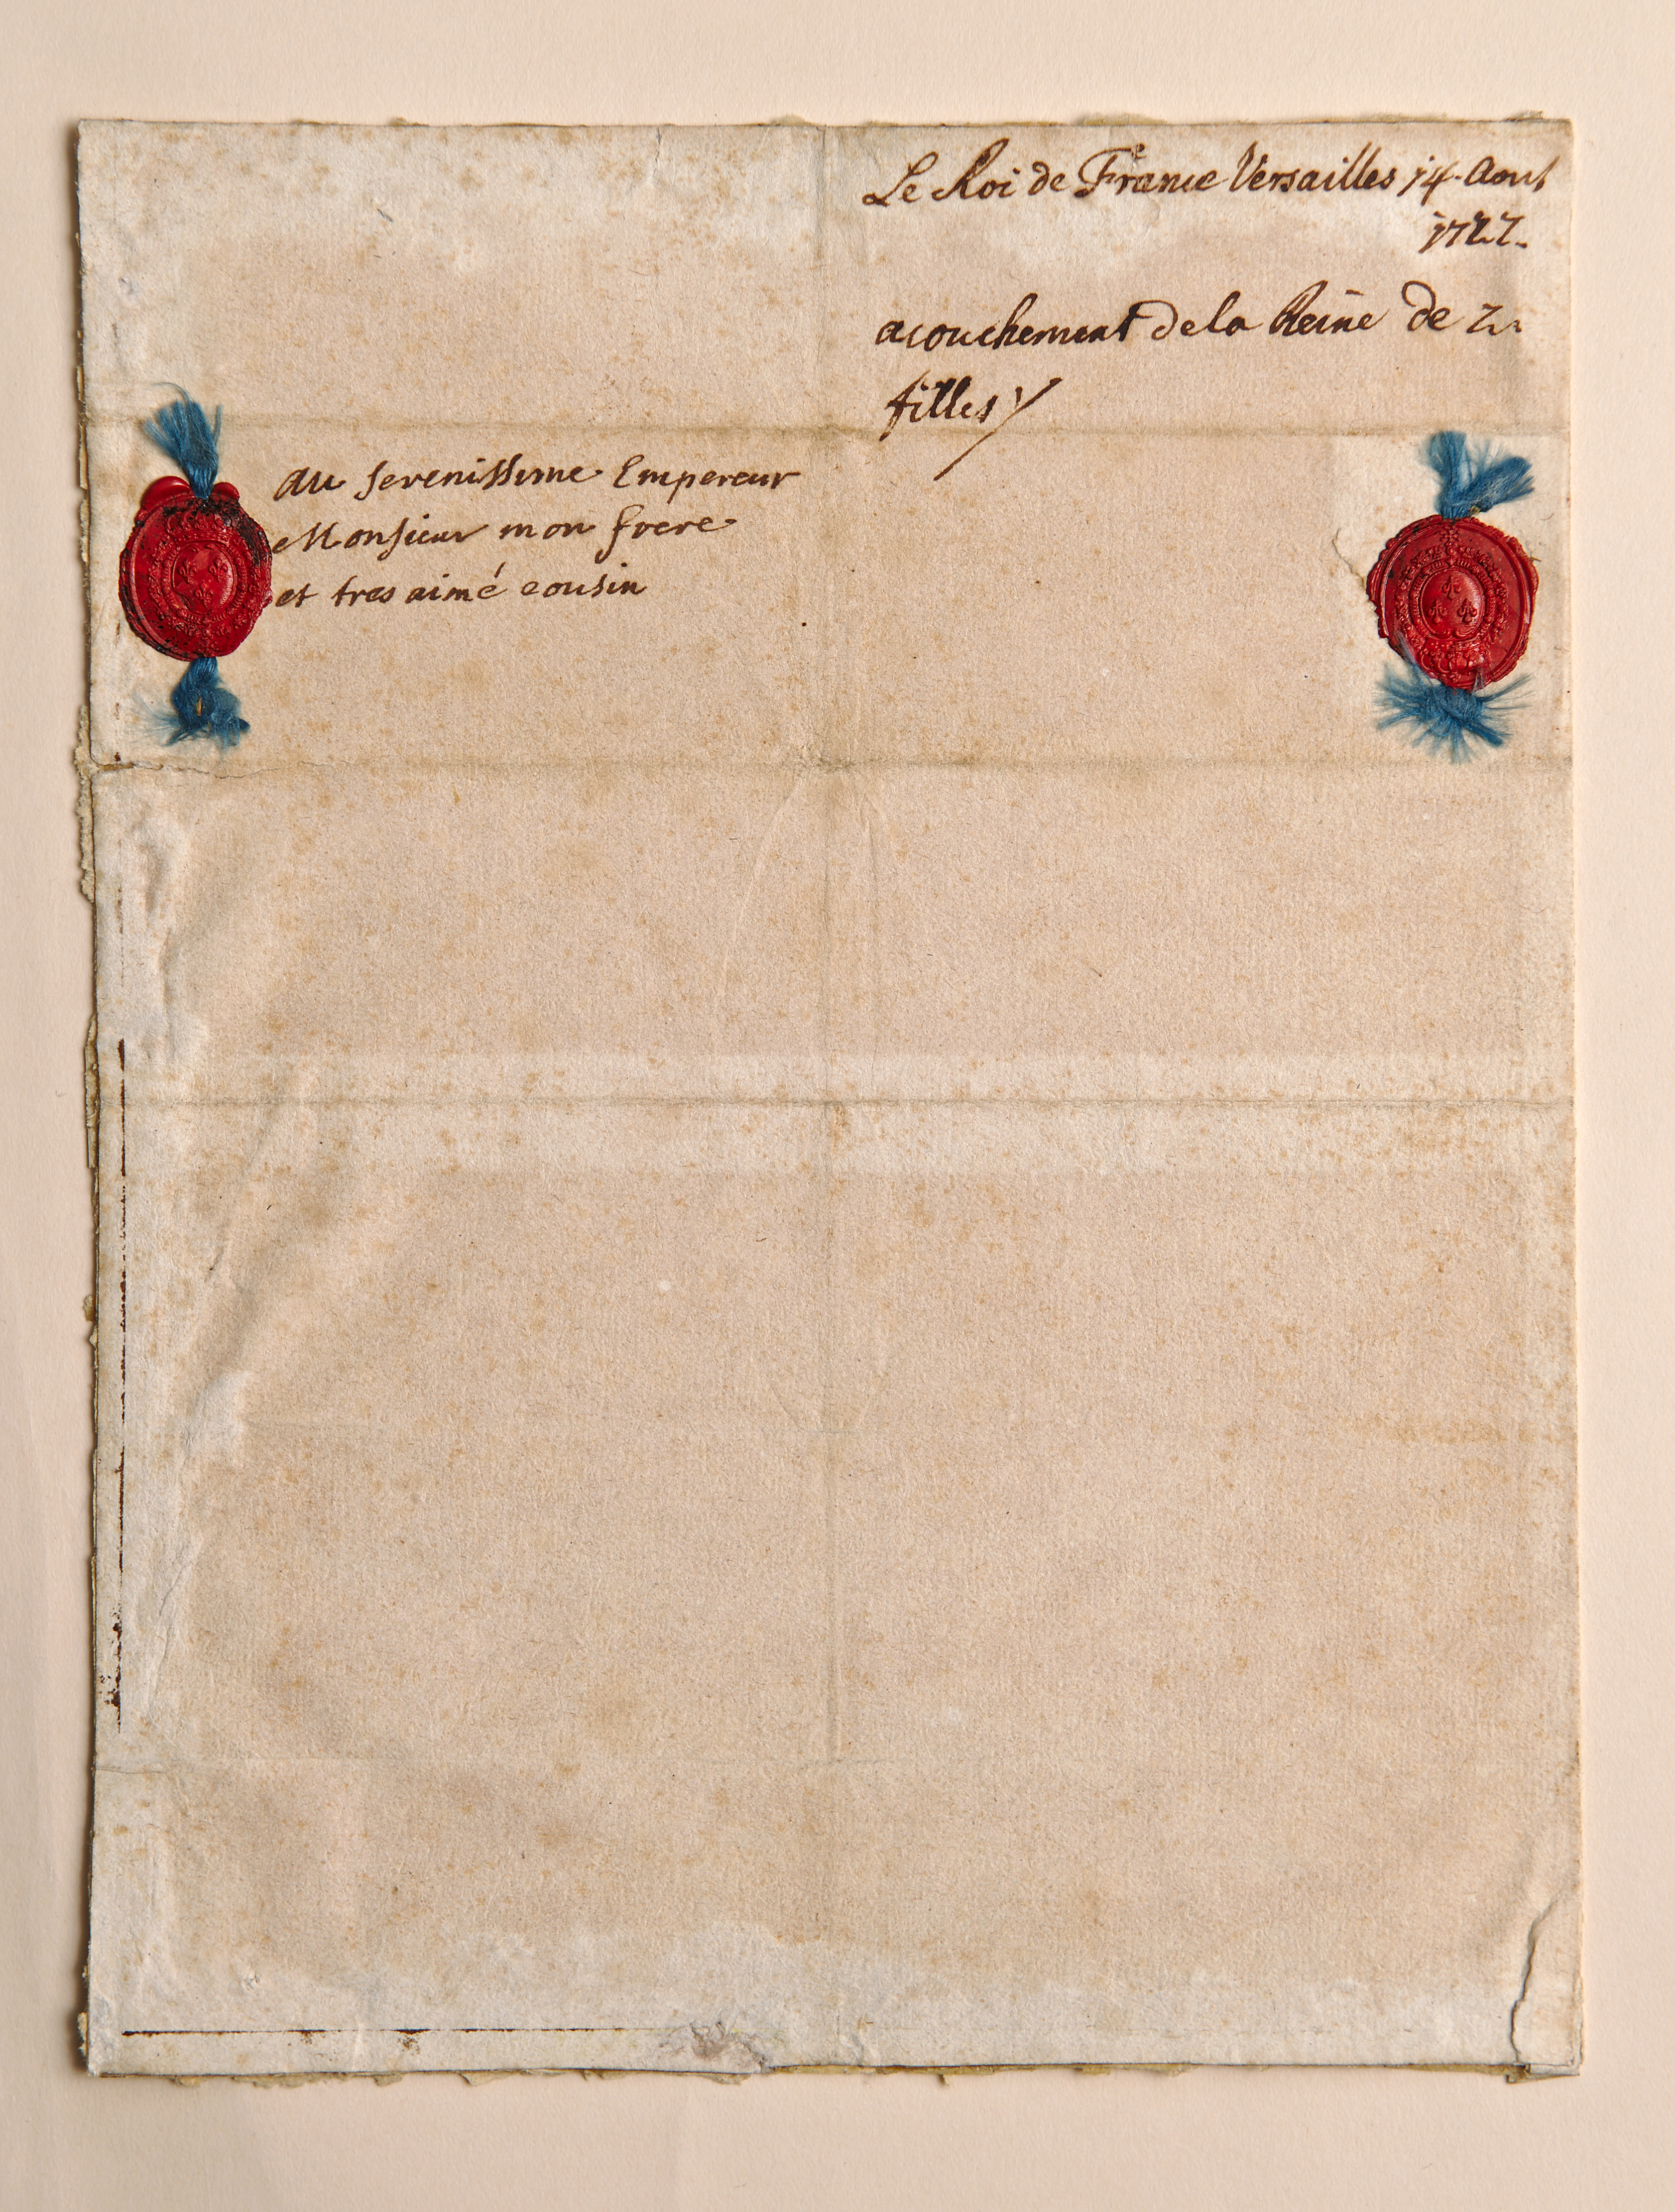 Le Roi de France Versailles 14. Aout
1727.
acouchement dela Reine de 2.
filles
au serenissime Empereur
Monsieur mon frere
et tres aimé cousin